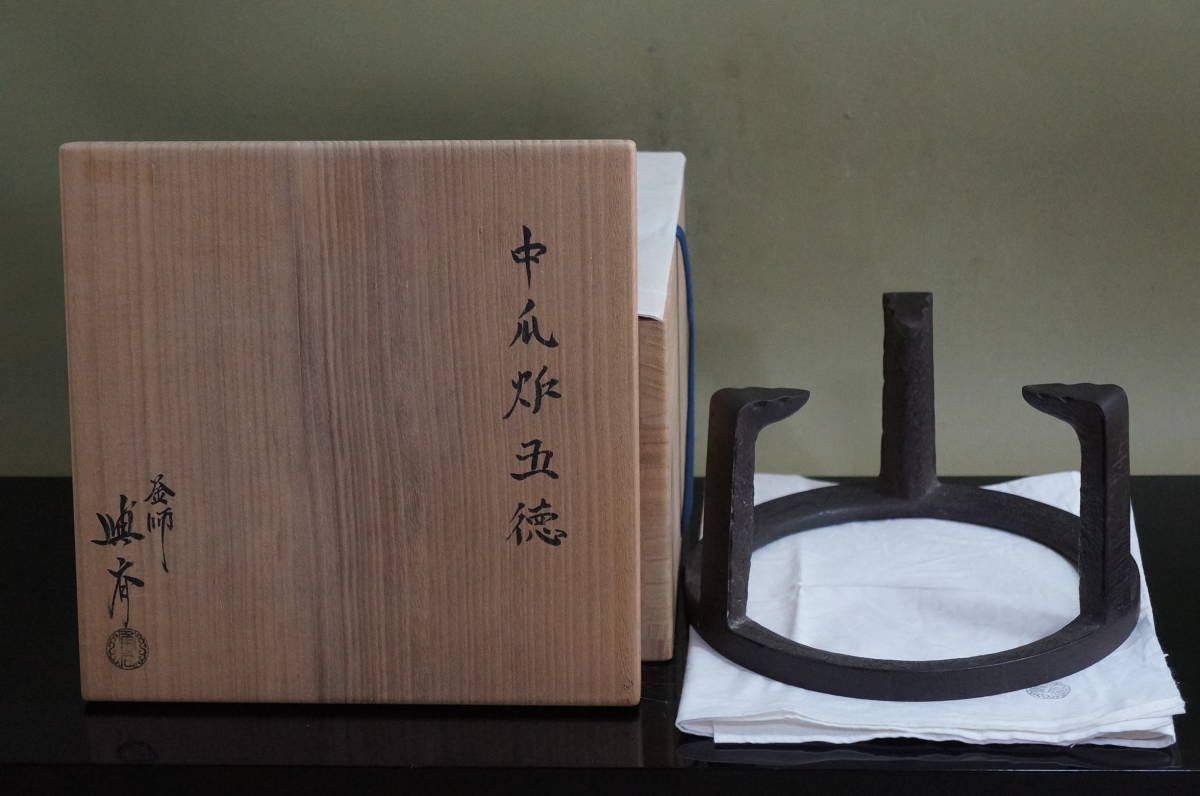 中爪炉五徳
釜師
與斎